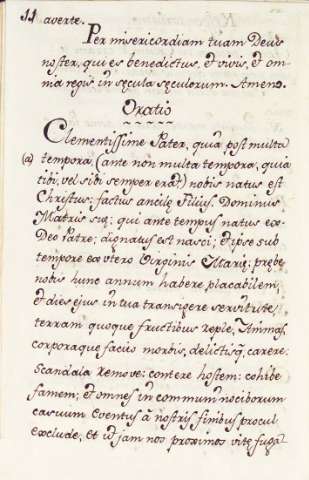 11 averte.
Per misericordiam tuam Deus
noster, qui es benedictus, et vivis, et om-
nia regis in sęcula sęculorum. Amen.
Oratio
Clementissime Pater, quia post multa
(a) tempora (ante non multa tempora, quia
tibi, vel sibi semper erat) nobis natus est
Christus: factus ancilę Filius, Dominus
Matris suę: qui ante tempus natus ex
Deo Patre; dignatus est nasci; et ipse sub
tempore ex utero Virginis Marię: prębe
nobis hunc annum habere placabilem,
et dies ejus in tua transigere servitute,
terram quoque fructibus reple, Animas,
corporaque facias morbis, delictisq, carere.
Scandala remove: contere hostem: cohibe
famem; et omnes in commun nociborum
casuum eventus â nostris finibus procul
exclude, et